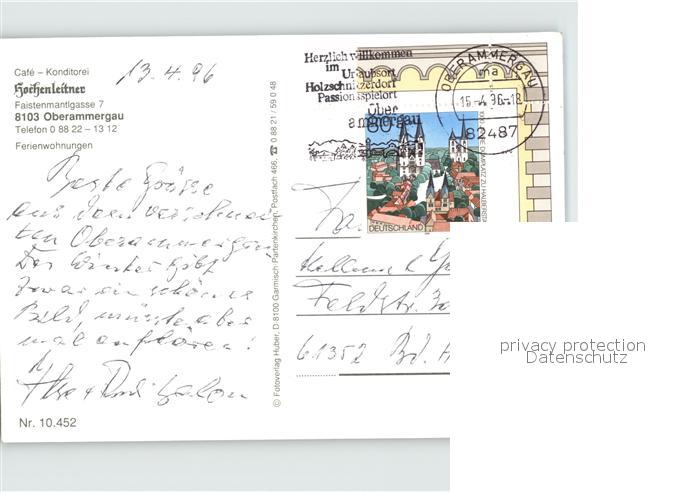 Café – Konditorei
Hochenleitner
Faistenmantlgasse 7
8103 Oberammergau
Telefon 0 88 22 – 13 12
Ferienwohnungen
13.4.96
Beste Grüsse
aus dem verschnei
ten Oberammergau,
Der Winter gibt
zwar ein schönes
Bild, müsste aber
mal aufhören!
Nr. 10.452
© Fotoverlag Huber, D 8100 Garmisch-Partenkirchen, Postfach 466, ☎ 0 88 21 / 59 0 48
Herzlich willkommen
im
Urlaubsort
Holzschnitzerdorf
Passionsspielort
Ober
ammergau
OBERAMMERGAU
ma
15.-4.96.-18
82487
80
DEUTSCHLAND
Fa
Feldstr.
61352 Bd. H
privacy protection
Datenschutz